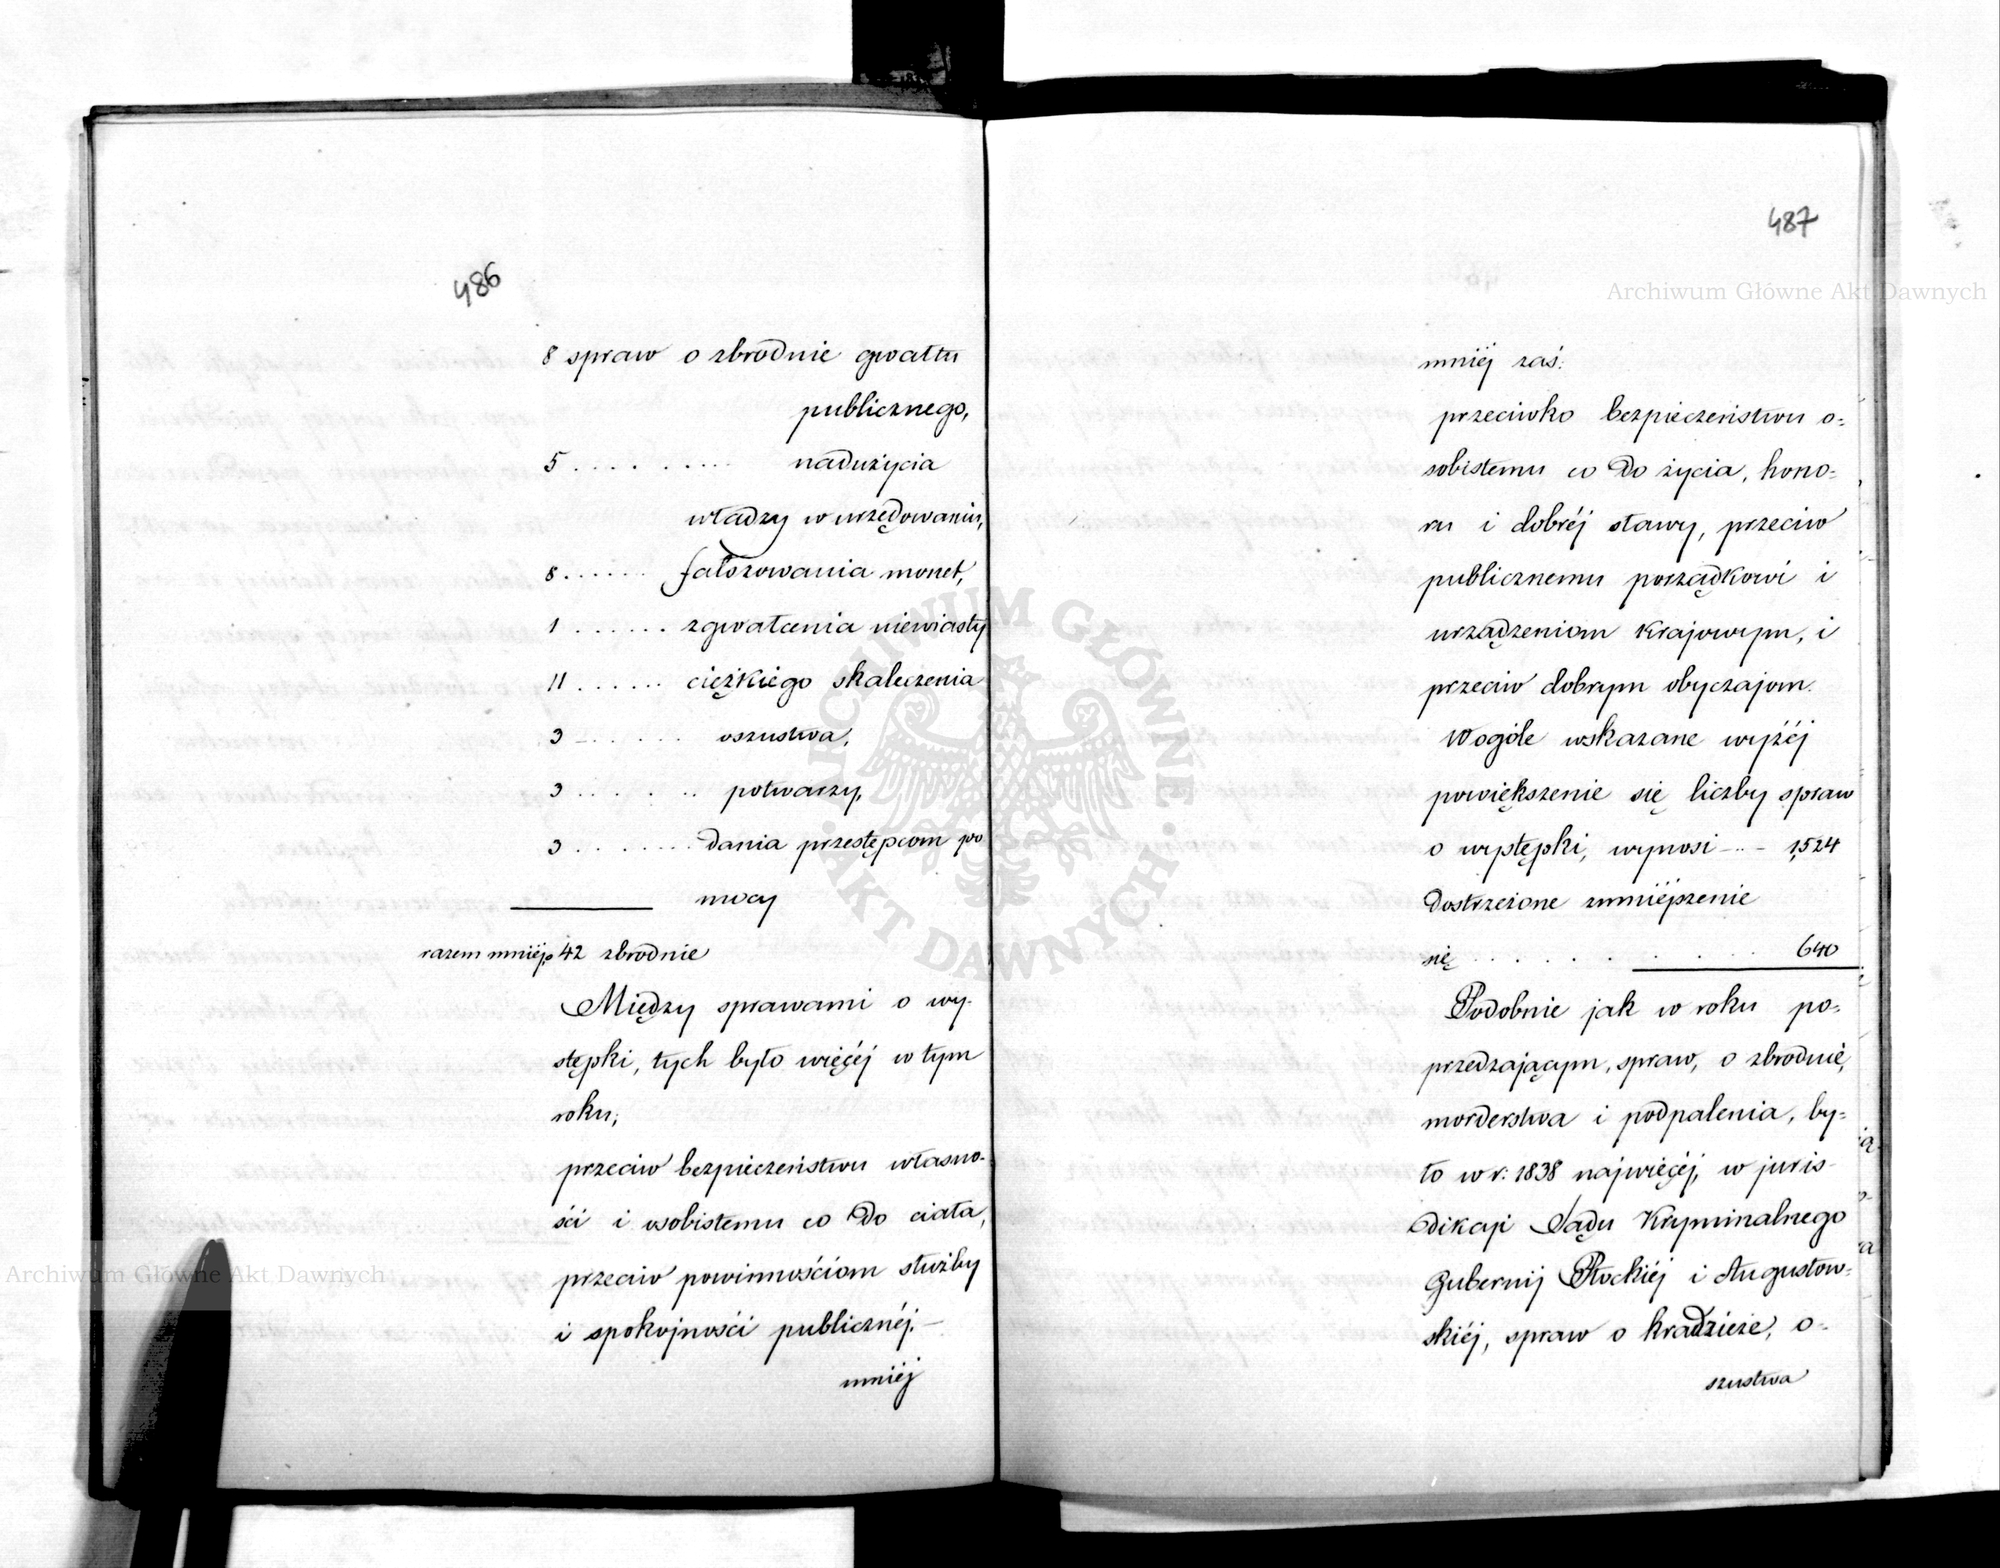 486
8 spraw o zbrodnie gwałtu
publicznego,
5 . . . . . . . . . nadużycia
władzy w urzędowaniu,
8 . . . . . . fałszowania monet,
1 . . . . . . zgwałcenia niewiasty
11 . . . . . . ciężkiego skaleczenia
3 . . . . . . oszustwa,
3 . . . . . . potwarzy,
3 . . . . . . . dania przestępcom po
mocy
razem mniéj o 42 zbrodnie
Między sprawami o wy-
stępki, tych było więcéj w tym
roku;
przeciw bezpieczeństwu własno-
ści i osobistemu co do ciała,
przeciw powinnościom służby
i spokojności publicznéj. —
mniéj
487
mniéj zaś:
przeciwko bezpieczeństwu o=
sobistemu co do życia, hono=
ru i dobréj sławy, przeciw
publicznemu porządkowi i
urządzeniom krajowym, i
przeciw dobrym obyczajom.
Wogóle wskazane wyżéj
powiększenie się liczby spraw
o występki, wynosi - .. - 1,524
Dostrzeżone zmniéjszenie
się . . . . . . . . . 640
Podobnie jak w roku po=
przedzającym, spraw, o zbrodnie,
morderstwa i podpalenia, by=
ło w r: 1838 najwięcéj, w juris-
dikcji Sądu Kryminalnego
Gubernij Płockiéj i Augustow=
skiéj, spraw o kradzieże, o=
szustwa
Archiwum Główne Akt Dawnych
Archiwum Główne Akt Dawnych
ARCHIWUM GŁÓWNE
AKT DAWNYCH